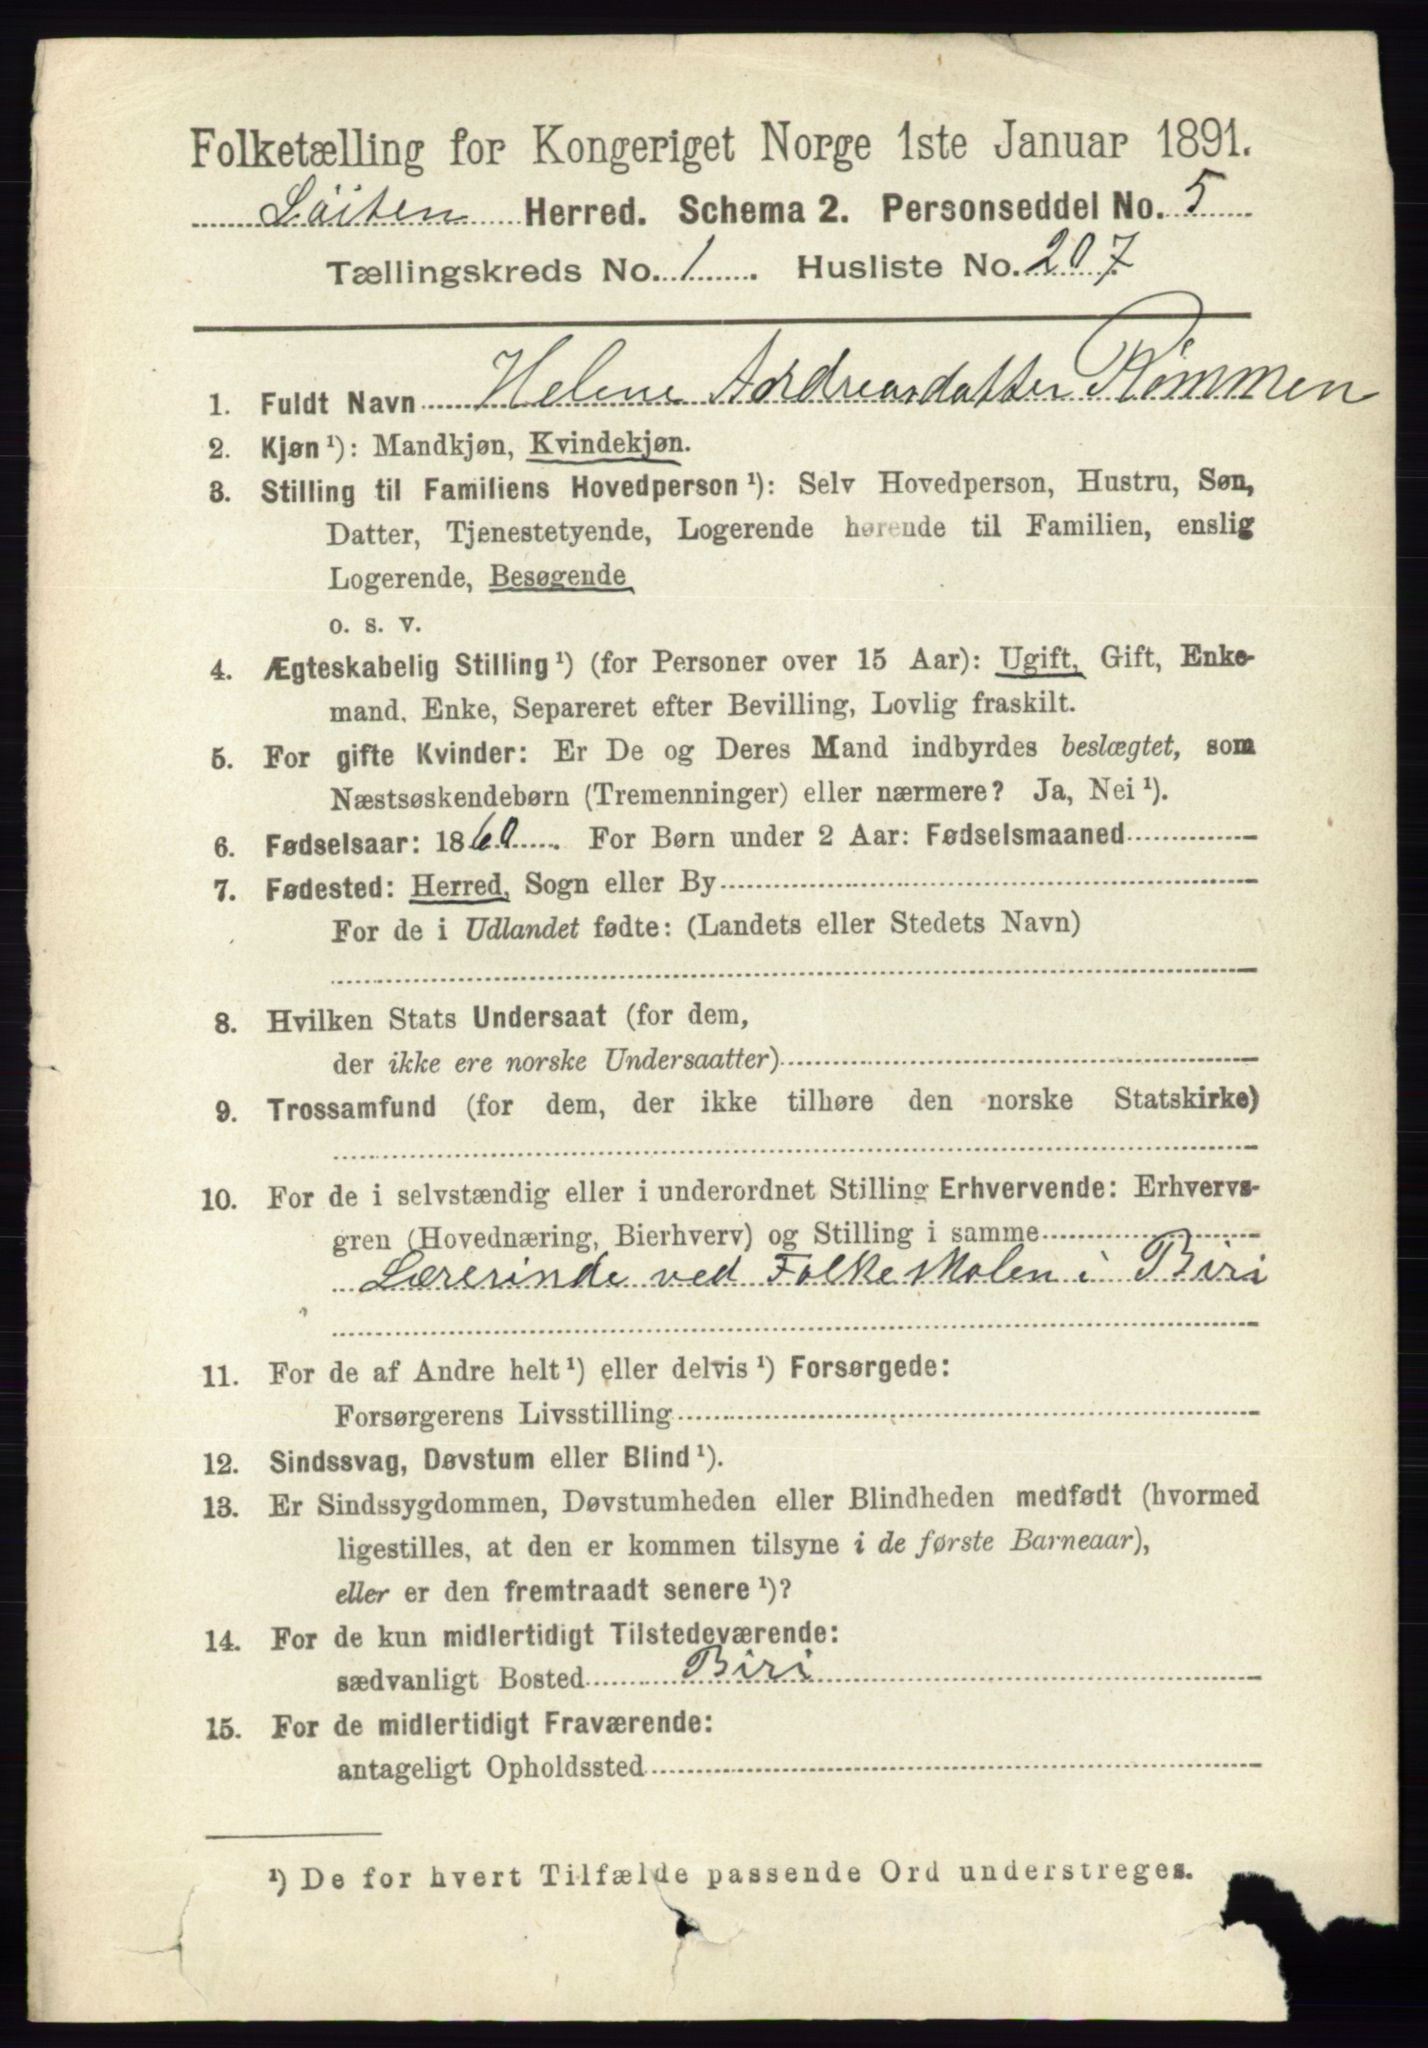 Folketælling for Kongeriget Norge 1ste Januar 1891.
Löiten Herred. Schema 2. Personseddel No. 5
Tællingskreds No. 1. Husliste No. 207
1. Fuldt Navn Helene Andreasdatter Rømmen
2. Kjøn ¹): Mandkjøn, Kvindekjøn.
3. Stilling til Familiens Hovedperson ¹): Selv Hovedperson, Hustru, Søn,
Datter, Tjenestetyende, Logerende hørende til Familien, enslig
Logerende, Besøgende
o. s. v.
4. Ægteskabelig Stilling ¹) (for Personer over 15 Aar): Ugift, Gift, Enke-
mand, Enke, Separeret efter Bevilling, Lovlig fraskilt.
5. For gifte Kvinder: Er De og Deres Mand indbyrdes beslægtet, som
Næstsøskendebørn (Tremenninger) eller nærmere? Ja, Nei ¹).
6. Fødselsaar: 1860. For Børn under 2 Aar: Fødselsmaaned
7. Fødested: Herred, Sogn eller By
For de i Udlandet fødte: (Landets eller Stedets Navn)
8. Hvilken Stats Undersaat (for dem,
der ikke ere norske Undersaatter)
9. Trossamfund (for dem, der ikke tilhøre den norske Statskirke)
10. For de i selvstændig eller i underordnet Stilling Erhvervende: Erhvervs-
gren (Hovednæring, Bierhverv) og Stilling i samme
Lærerinde ved Folkeskolen i Biri
11. For de af Andre helt ¹) eller delvis ¹) Forsørgede:
Forsørgerens Livsstilling
12. Sindssvag, Døvstum eller Blind ¹).
13. Er Sindssygdommen, Døvstumheden eller Blindheden medfødt (hvormed
ligestilles, at den er kommen tilsyne i de første Barneaar),
eller er den fremtraadt senere ¹)?
14. For de kun midlertidigt Tilstedeværende:
sædvanligt Bosted Biri
15. For de midlertidigt Fraværende:
antageligt Opholdssted
¹) De for hvert Tilfælde passende Ord understreges.